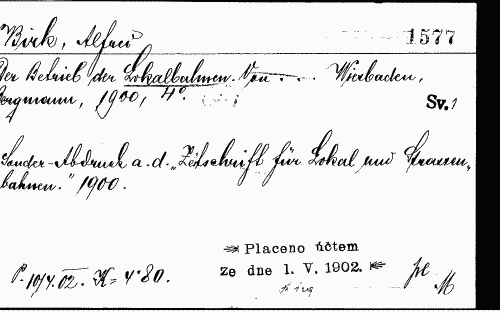 Birk, Alfred
1577
Der Betrieb der Lokalbahnen. Von .... Wiesbaden,
Bergmann, 1900, 4º.
Sv. 1
Sonder-Abdruck a. d. „Zeitschrift für Lokal und Strassen-
bahnen." 1900.
Placeno účtem
ze dne 1. V. 1902.
P. 10/4. 02. K = 4·80.